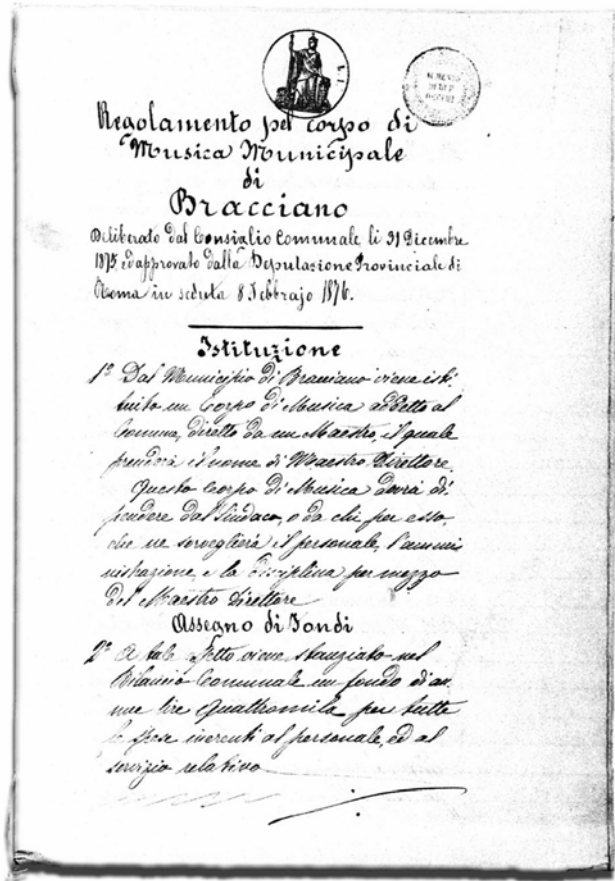 L. 1
Regolamento pel corpo di
Musica Municipale
di
Bracciano
Deliberato dal Consiglio Comunale li 31 Dicembre
1875, ed approvato dalla Deputazione Provinciale di
Roma in seduta 8 Febbrajo 1876.
Istituzione
1º Dal Municipio di Bracciano viene isti:
tuito un Corpo di Musica addetto al
Comune, diretto da un Maestro, il quale
prenderà il nome di Maestro Direttore.
Questo Corpo di Musica dovrà di
pendere dal Sindaco, o da chi per esso,
che ne sorveglierà il personale, l'ammi
nistrazione, e la disciplina per mezzo
del Maestro Direttore
Assegno di Fondi
2º A tale effetto viene stanziato nel
Bilancio Comunale un fondo di an
nue lire Quattromila per tutte
le spese inerenti al personale, ed al
servizio relativo